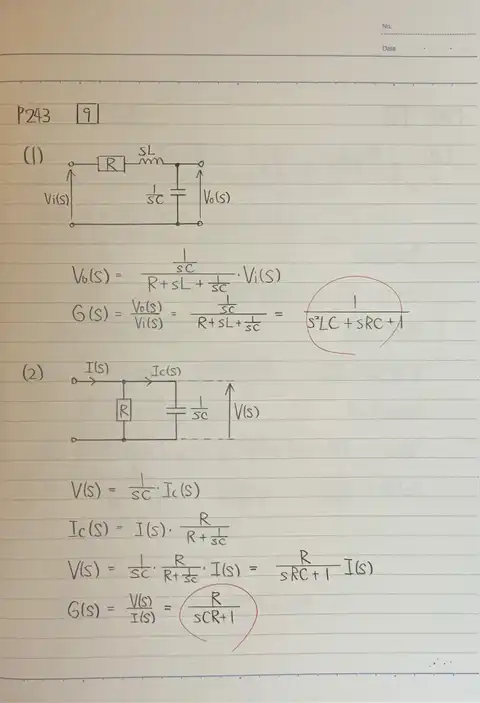 No.
Date
P243 9
(1)
R sL
Vi(s) 1/sC Vo(s)
Vo(s) = (1/sC)/(R+sL+1/sC)・Vi(s)
G(s) = Vo(s)/Vi(s) = (1/sC)/(R+sL+1/sC) = 1/(s²LC+sRC+1)
(2) I(s) Ic(s)
R 1/sC V(s)
V(s) = 1/sC・Ic(s)
Ic(s) = I(s)・R/(R+1/sC)
V(s) = 1/sC・R/(R+1/sC)・I(s) = R/(sRC+1) I(s)
G(s) = V(s)/I(s) = R/(sCR+1)